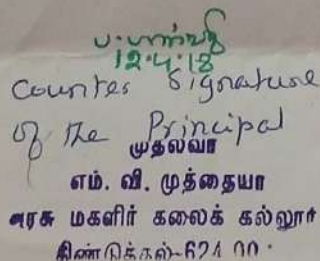 ப. பார்வதி
12.4.18
Counter Signature
of the Principal
முதல்வர்
எம். வி. முத்தையா
அரசு மகளிர் கலைக் கல்லூர்
திண்டுக்கல்-624 00